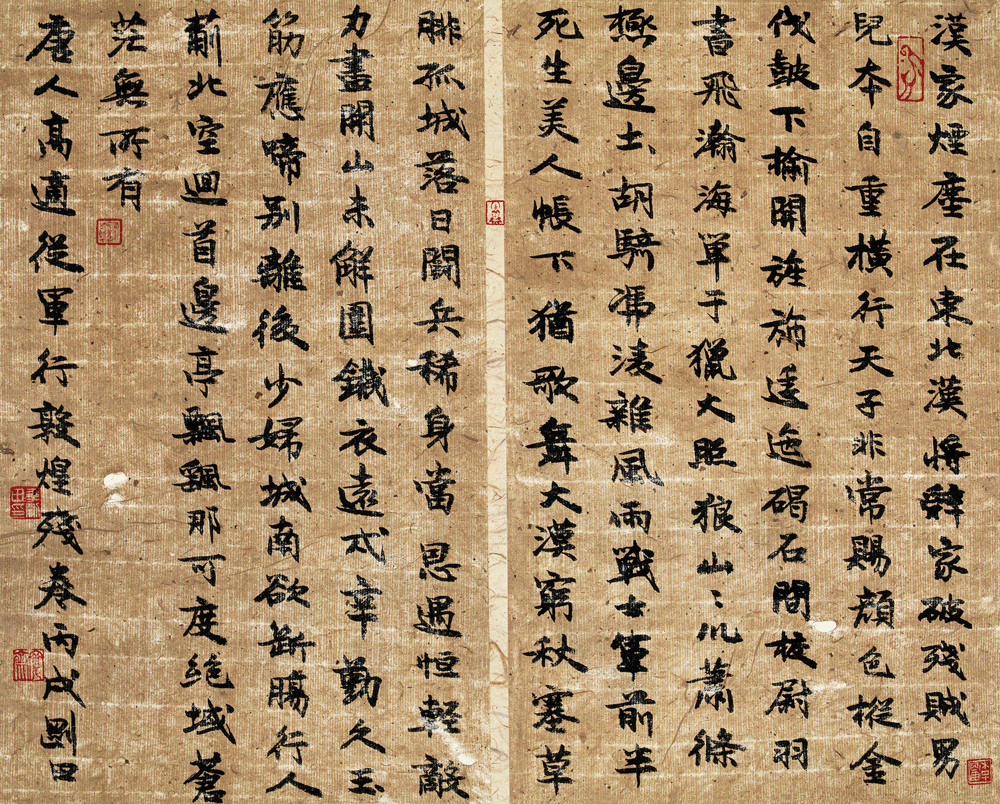 漢家煙塵在東北漢將辭家破殘賊男
兒本自重橫行天子非常賜顏色樅金
伐鼓下榆關旌旆逶迤碣石間校尉羽
書飛瀚海單于獵火照狼山〻川蕭條
極邊土胡騎馮淩雜風雨戰士軍前半
死生美人帳下猶歌舞大漠窮秋塞草
腓孤城落日鬪兵稀身當恩遇恒輕敵
力盡關山未解圍鐵衣遠戍辛勤久玉
筯應啼別離後少婦城南欲斷腸行人
薊北空迴首邊亭飄飄那可度絕域蒼
茫無所有
唐人高適從軍行敦煌殘卷丙戌